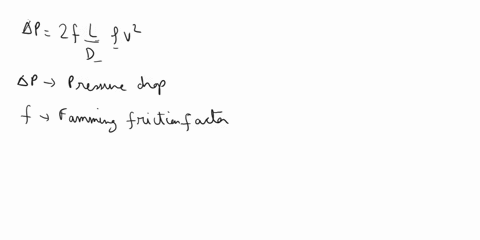 ΔP = 2f L/D ρ v²
ΔP → Pressure drop
f → Famming friction factor